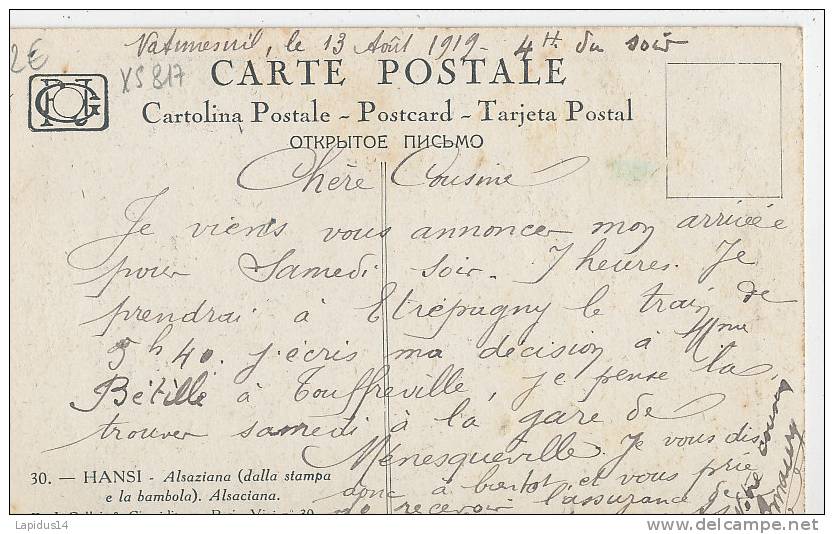 Vatimesnil, le 13 Août 1919 - 4h du soir
2€
XS 817
CARTE POSTALE
Cartolina Postale - Postcard - Tarjeta Postal
ОТКРЫТОЕ ПИСЬМО
Chère Cousine
Je viens vous annoncer mon arrivée
pour Samedi soir - 7 heures. Je
prendrai à Etrépagny le train de
5h40. j'écris ma décision à Mme
Bétille à Touffreville, je pense la
trouver samedi à la gare de
Menesqueville. Je vous dis
donc à bientôt et vous prie
recevoir l'assurance de
Votre cousin
30. — HANSI - Alsaziana (dalla stampa
e la bambola). Alsaciana.
Lapidus14
www.delcampe.net